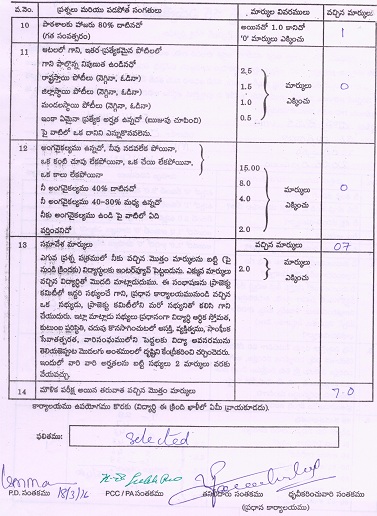 వ.నెం. ప్రశ్నలు మరియు పదవోత సంగతులు మార్కుల వివరములు వచ్చిన మార్కులు
10 పాఠశాలకు హాజరు 80% దాటినదో అయినదో 1.0 కానిదో 1
(గత సంవత్సరం) '0' మార్కులు ఎక్కించు
11 ఆటలలో గాని, ఇతర-ప్రత్యేకమైన పోటీలలో
గాని పాల్గొన్న నిపుణుత ఉండినదో
రాష్ట్రస్థాయి పోటీలు (నెగ్గినా, ఓడినా) 2.5 మార్కులు 0
జిల్లాస్థాయి పోటీలు (నెగ్గినా, ఓడినా) 1.5 ఎక్కించు
మండలస్థాయి పోటీలు (నెగ్గినా, ఓడినా) 1.0
ఇంకా ఏమైనా ప్రత్యేక అర్హత ఉన్నదో (ఋజువు చూపించి) 0.5
పై వాటిలో ఒక దానిని ఎన్నుకొనవలెను.
12 అంగవైకల్యము ఉన్నదో, నీవు నడవలేక పోయినా,
ఒక కంటి చూపు లేకపోయినా, ఒక చేయి లేకపోయినా, 15.00
ఒక కాలు లేకపోయినా 8.0 మార్కులు 0
నీ అంగవైకల్యము 40% దాటినదో 4.0 ఎక్కించు
నీ అంగవైకల్యము 40-30% మధ్య ఉన్నదో
నీకు అంగవైకల్యము ఉండి పై వాటిలో ఏది 2.0
వర్తించనిదో
13 సమావేశ మార్కులు వచ్చిన మార్కులు 07
ఎగువ ప్రశ్న పత్రములో నీకు వచ్చిన మొత్తం మార్కులను బట్టి (పై
నుండి క్రిందకు) విద్యార్థులకు ఇంటర్వ్యూకి పెట్టండును. ఎక్కువ మార్కులు 2.0 మార్కులు
వచ్చిన విద్యార్థితో మొదటి మాట్లాడుదుము. ఈ సంభాషణను ప్రాజెక్టు ఎక్కించు
కమిటీలో ఇద్దరి సభ్యులచే గాని, ప్రధాన కార్యాలయమునుండి వచ్చిన
ఒక సభ్యుడు, ప్రాజెక్టు కమిటీలోని మరో సభ్యునితో కలిసి గాని
చేయుదురు. ఇట్లా మాట్లాడు సభ్యులు ప్రధానంగా విద్యార్థి ఆర్థిక స్తోమత,
కుటుంబ పరిస్థితి, చదువు కొనసాగించుటలో ఆసక్తి, వ్యక్తిత్వము, సాంఘీక
సేవాతత్పరత, వారిసంఘములోని పెద్దలకు విద్యా అవసరమును
తెలియజెప్పుట మొదలగు అంశములలో దృష్టిని కేంద్రీకరించి చర్చించెదరు.
ఇందులో వారి వారి అర్హతలను బట్టి సభ్యులు 2 మార్కులు వరకు
వేయవచ్చు.
14 మౌళిక పరీక్ష అయిన తరువాత వచ్చిన మొత్తం మార్కులు 7.0
కార్యాలయము ఉపయోగము కొరకు (విద్యార్థి ఈ క్రింది ఖాళీలో ఏమీ వ్రాయకూడదు).
ఫలితము: selected
P.D. సంతకము 18/3/16 PCC / PA సంతకము తనిఖీదారు సంతకము ధృవీకరించువారి సంతకము
(ప్రధాన కార్యాలయం)